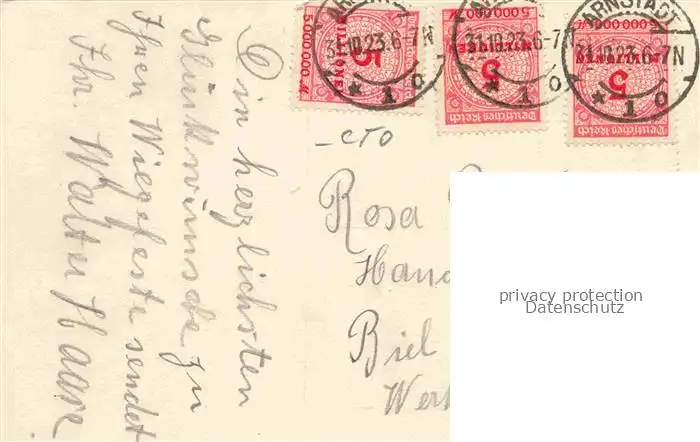 Die herzlichsten
Glückwünsche zu
Ihrem Wiegefeste sendet
Ihr. Walter Haase
5000000 M
MILLIONEN
5
5000000 M
MILLIONEN
5
Deutsches Reich
5000000 M
MILLIONEN
5
Deutsches Reich
31.10.23.6-7N
* 1 o
31.10.23.6-7N
* 1 o
ARNSTADT
31.10.23.6-7N
* 1 o
Rosa
Hand
Biel
Wer
privacy protection
Datenschutz